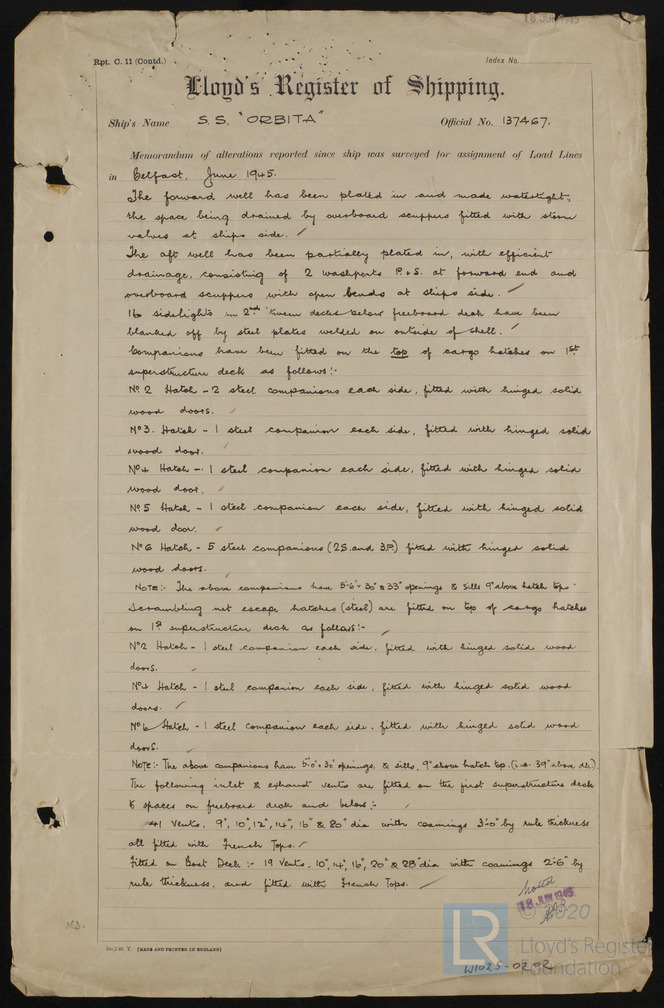 18 JUN 1945
Rpt. C. 11 (Contd.)
Index No.
Lloyd's Register of Shipping.
Ship's Name S.S. "ORBITA" Official No. 137467.
Memorandum of alterations reported since ship was surveyed for assignment of Load Lines
in Belfast, June 1945.
The forward well has been plated in and made watertight,
the space being drained by overboard scuppers fitted with storm
valves at ships side.
The aft well has been partially plated in, with efficient
drainage, consisting of 2 washports P.&S. at forward end and
overboard scuppers with open bends at ships side.
16 sidelights in 2nd 'tween decks below freeboard deck have been
blanked off by steel plates welded on outside of shell.
Companions have been fitted on the top of cargo hatches on 1st
superstructure deck as follows:-
No 2 Hatch - 2 steel companions each side, fitted with hinged solid
wood doors.
No 3. Hatch - 1 steel companion each side, fitted with hinged solid
wood door.
No 4 Hatch - 1 steel companion each side, fitted with hinged solid
wood door.
No 5 Hatch - 1 steel companion each side, fitted with hinged solid
wood door.
No 6 Hatch - 5 steel companions (2S. and 3P.) fitted with hinged solid
wood doors.
NOTE:- The above companions have 5'-6" x 30" & 33" openings & sills 9" above hatch top.
Scrambling net escape hatches (steel) are fitted on top of cargo hatches
on 1st superstructure deck as follows:-
No 2 Hatch - 1 steel companion each side, fitted with hinged solid wood
doors.
No 4 Hatch - 1 steel companion each side, fitted with hinged solid wood
doors.
No 6 Hatch - 1 steel companion each side, fitted with hinged solid wood
doors.
NOTE:- The above companions have 5'-0" x 30" openings, & sills, 9" above hatch top. (i.e. 39" above dk).
The following inlet & exhaust vents are fitted on the first superstructure deck
to spaces on freeboard deck and below:-
41 Vents, 9", 10", 12", 14", 16" & 20" dia with coamings 3'-0" by rule thickness
all fitted with French Tops.
Fitted on Boat Deck:- 19 Vents, 10", 14", 16", 20" & 28" dia with coamings 2'-6" by
rule thickness, and fitted with French Tops.
noted
18 JUN 1945
© 2020
LR
Lloyd's Register
Foundation
W1025-0202
(MADE AND PRINTED IN ENGLAND)